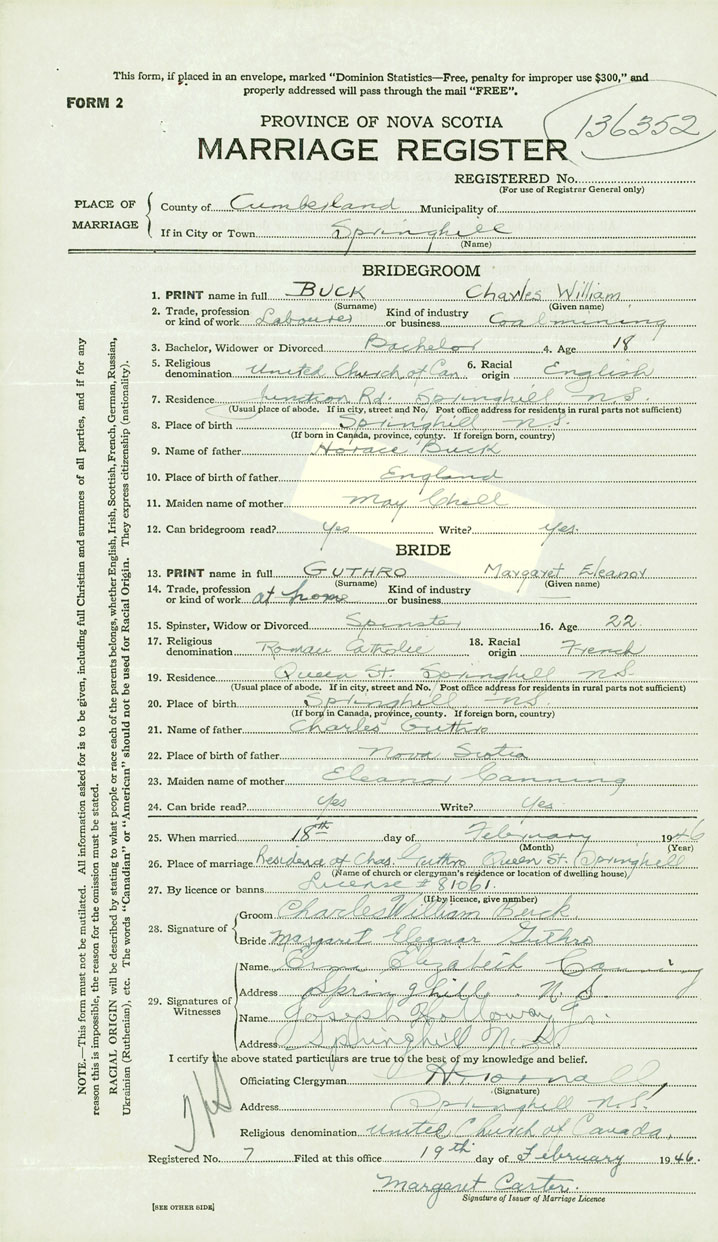 This form, if placed in an envelope, marked “Dominion Statistics—Free, penalty for improper use $300,” and
properly addressed will pass through the mail “FREE”.
FORM 2
136352
PROVINCE OF NOVA SCOTIA
MARRIAGE REGISTER
REGISTERED No.
(For use of Registrar General only)
PLACE OF MARRIAGE
County of Cumberland Municipality of
If in City or Town Springhill
(Name)
BRIDEGROOM
1. PRINT name in full BUCK Charles William
(Surname) (Given name)
2. Trade, profession or kind of work Labourer Kind of industry or business Coalmining
3. Bachelor, Widower or Divorced Bachelor 4. Age 18
5. Religious denomination United Church of Can. 6. Racial origin English
7. Residence Junction Rd. Springhill N.S.
(Usual place of abode. If in city, street and No. Post office address for residents in rural parts not sufficient)
8. Place of birth Springhill N.S.
(If born in Canada, province, county. If foreign born, country)
9. Name of father Horace Buck
10. Place of birth of father England
11. Maiden name of mother May Chell
12. Can bridegroom read? Yes Write? Yes.
BRIDE
13. PRINT name in full GUTHRO Margaret Eleanor
(Surname) (Given name)
14. Trade, profession or kind of work at home Kind of industry or business —
15. Spinster, Widow or Divorced Spinster 16. Age 22
17. Religious denomination Roman Catholic 18. Racial origin French
19. Residence Queen St. Springhill N.S.
(Usual place of abode. If in city, street and No. Post office address for residents in rural parts not sufficient)
20. Place of birth Springhill N.S.
(If born in Canada, province, county. If foreign born, country)
21. Name of father Charles Guthro
22. Place of birth of father Nova Scotia
23. Maiden name of mother Eleanor Canning
24. Can bride read? Yes Write? Yes.
25. When married 18th day of February 1946
(Month) (Year)
26. Place of marriage Residence of Chas. Guthro Queen St. Springhill
(Name of church or clergyman's residence or location of dwelling house)
27. By licence or banns License # 81061.
(If by licence, give number)
28. Signature of
Groom Charles William Buck
Bride Margaret Eleanor Guthro
29. Signatures of Witnesses
Name Elizabeth Canning
Address Springhill. N.S.
Name Joseph Holloway Jr.
Address Springhill N.S.
I certify the above stated particulars are true to the best of my knowledge and belief.
Officiating Clergyman
(Signature)
Address Springhill N.S.
Religious denomination United Church of Canada.
Registered No. 7 Filed at this office 19th day of February 1946.
Margaret Carter.
Signature of Issuer of Marriage Licence
[SEE OTHER SIDE]
NOTE.—This form must not be mutilated. All information asked for is to be given, including full Christian and surnames of all parties, and if for any
reason this is impossible, the reason for the omission must be stated.
RACIAL ORIGIN will be described by stating to what people or race each of the parents belongs, whether English, Irish, Scottish, French, German, Russian,
Ukrainian (Ruthenian), etc. The words “Canadian” or “American” should not be used for Racial Origin. They express citizenship (nationality).